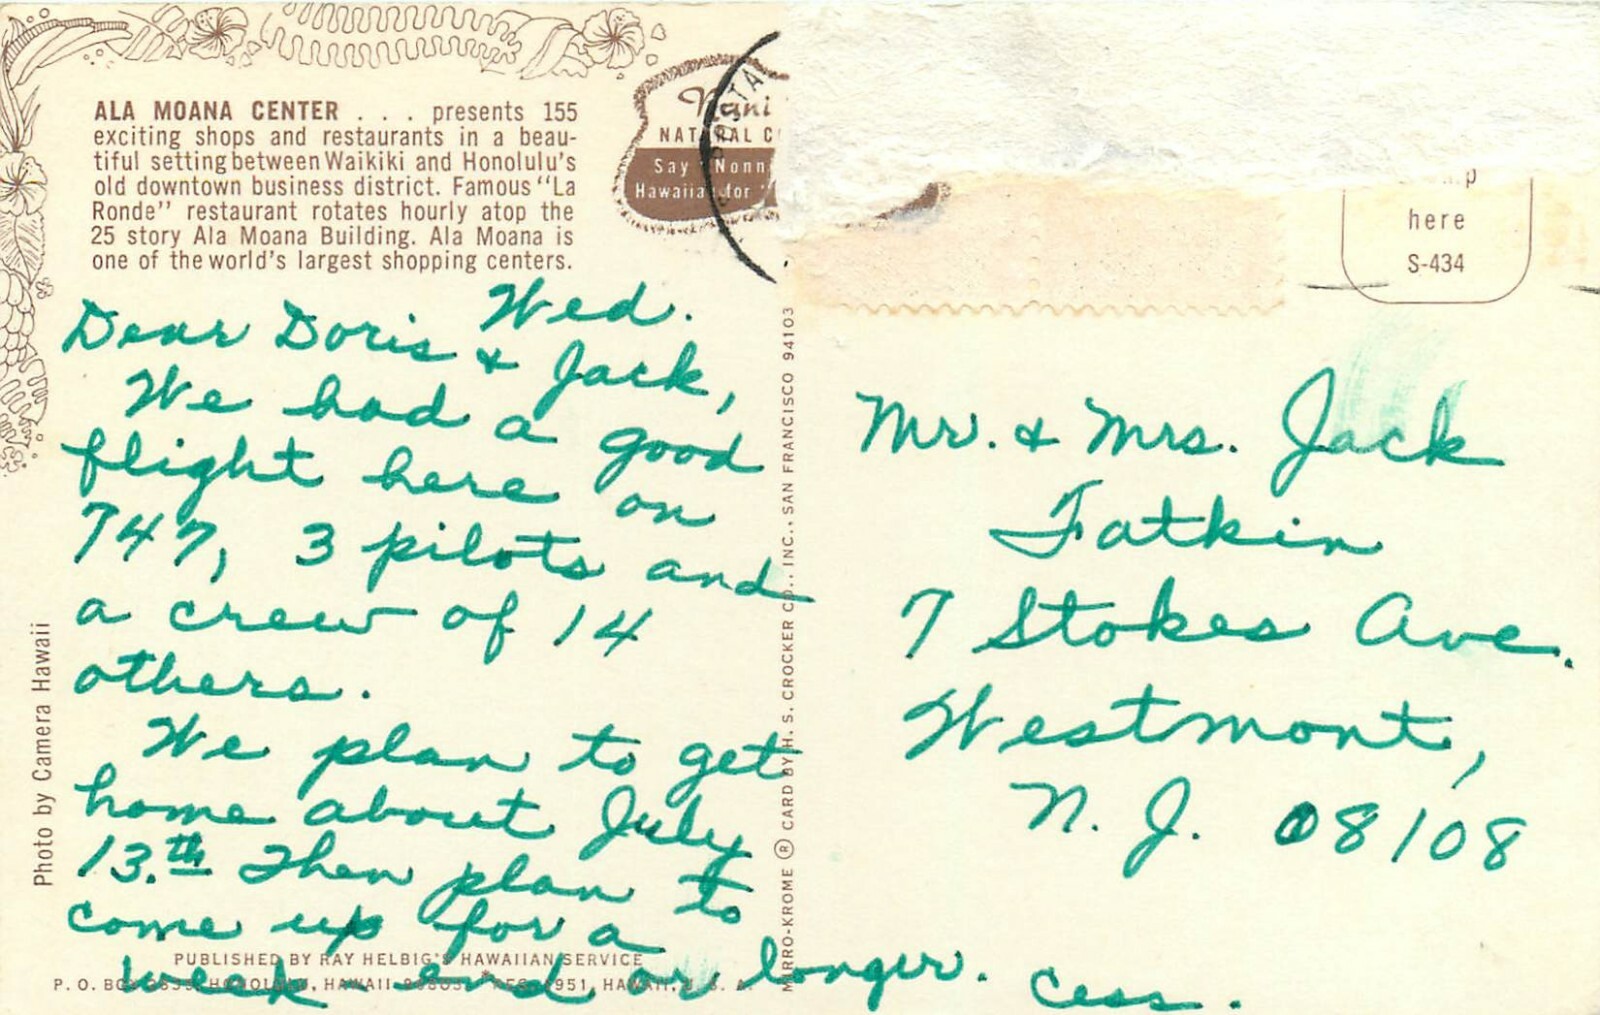 ALA MOANA CENTER . . . presents 155
exciting shops and restaurants in a beau-
tiful setting between Waikiki and Honolulu's
old downtown business district. Famous "La
Ronde" restaurant rotates hourly atop the
25 story Ala Moana Building. Ala Moana is
one of the world's largest shopping centers.
Nani
NATURAL
Say Nonn
Hawaiian for
here
S-434
Wed.
Dear Doris & Jack,
We had a good
flight here on
747, 3 pilots and
a crew of 14
others.
We plan to get
home about July
13.th Then plan to
come up for a
week end or longer. Cess.
Photo by Camera Hawaii
PUBLISHED BY RAY HELBIG'S HAWAIIAN SERVICE
P. O. BOX HONOLULU, HAWAII REG. 1951, HAWAII, U. S. A.
MIRRO-KROME ® CARD BY H. S. CROCKER CO., INC., SAN FRANCISCO 94103
Mr. & Mrs. Jack
Fatkin
7 Stokes Ave.
Westmont,
N. J. 08108